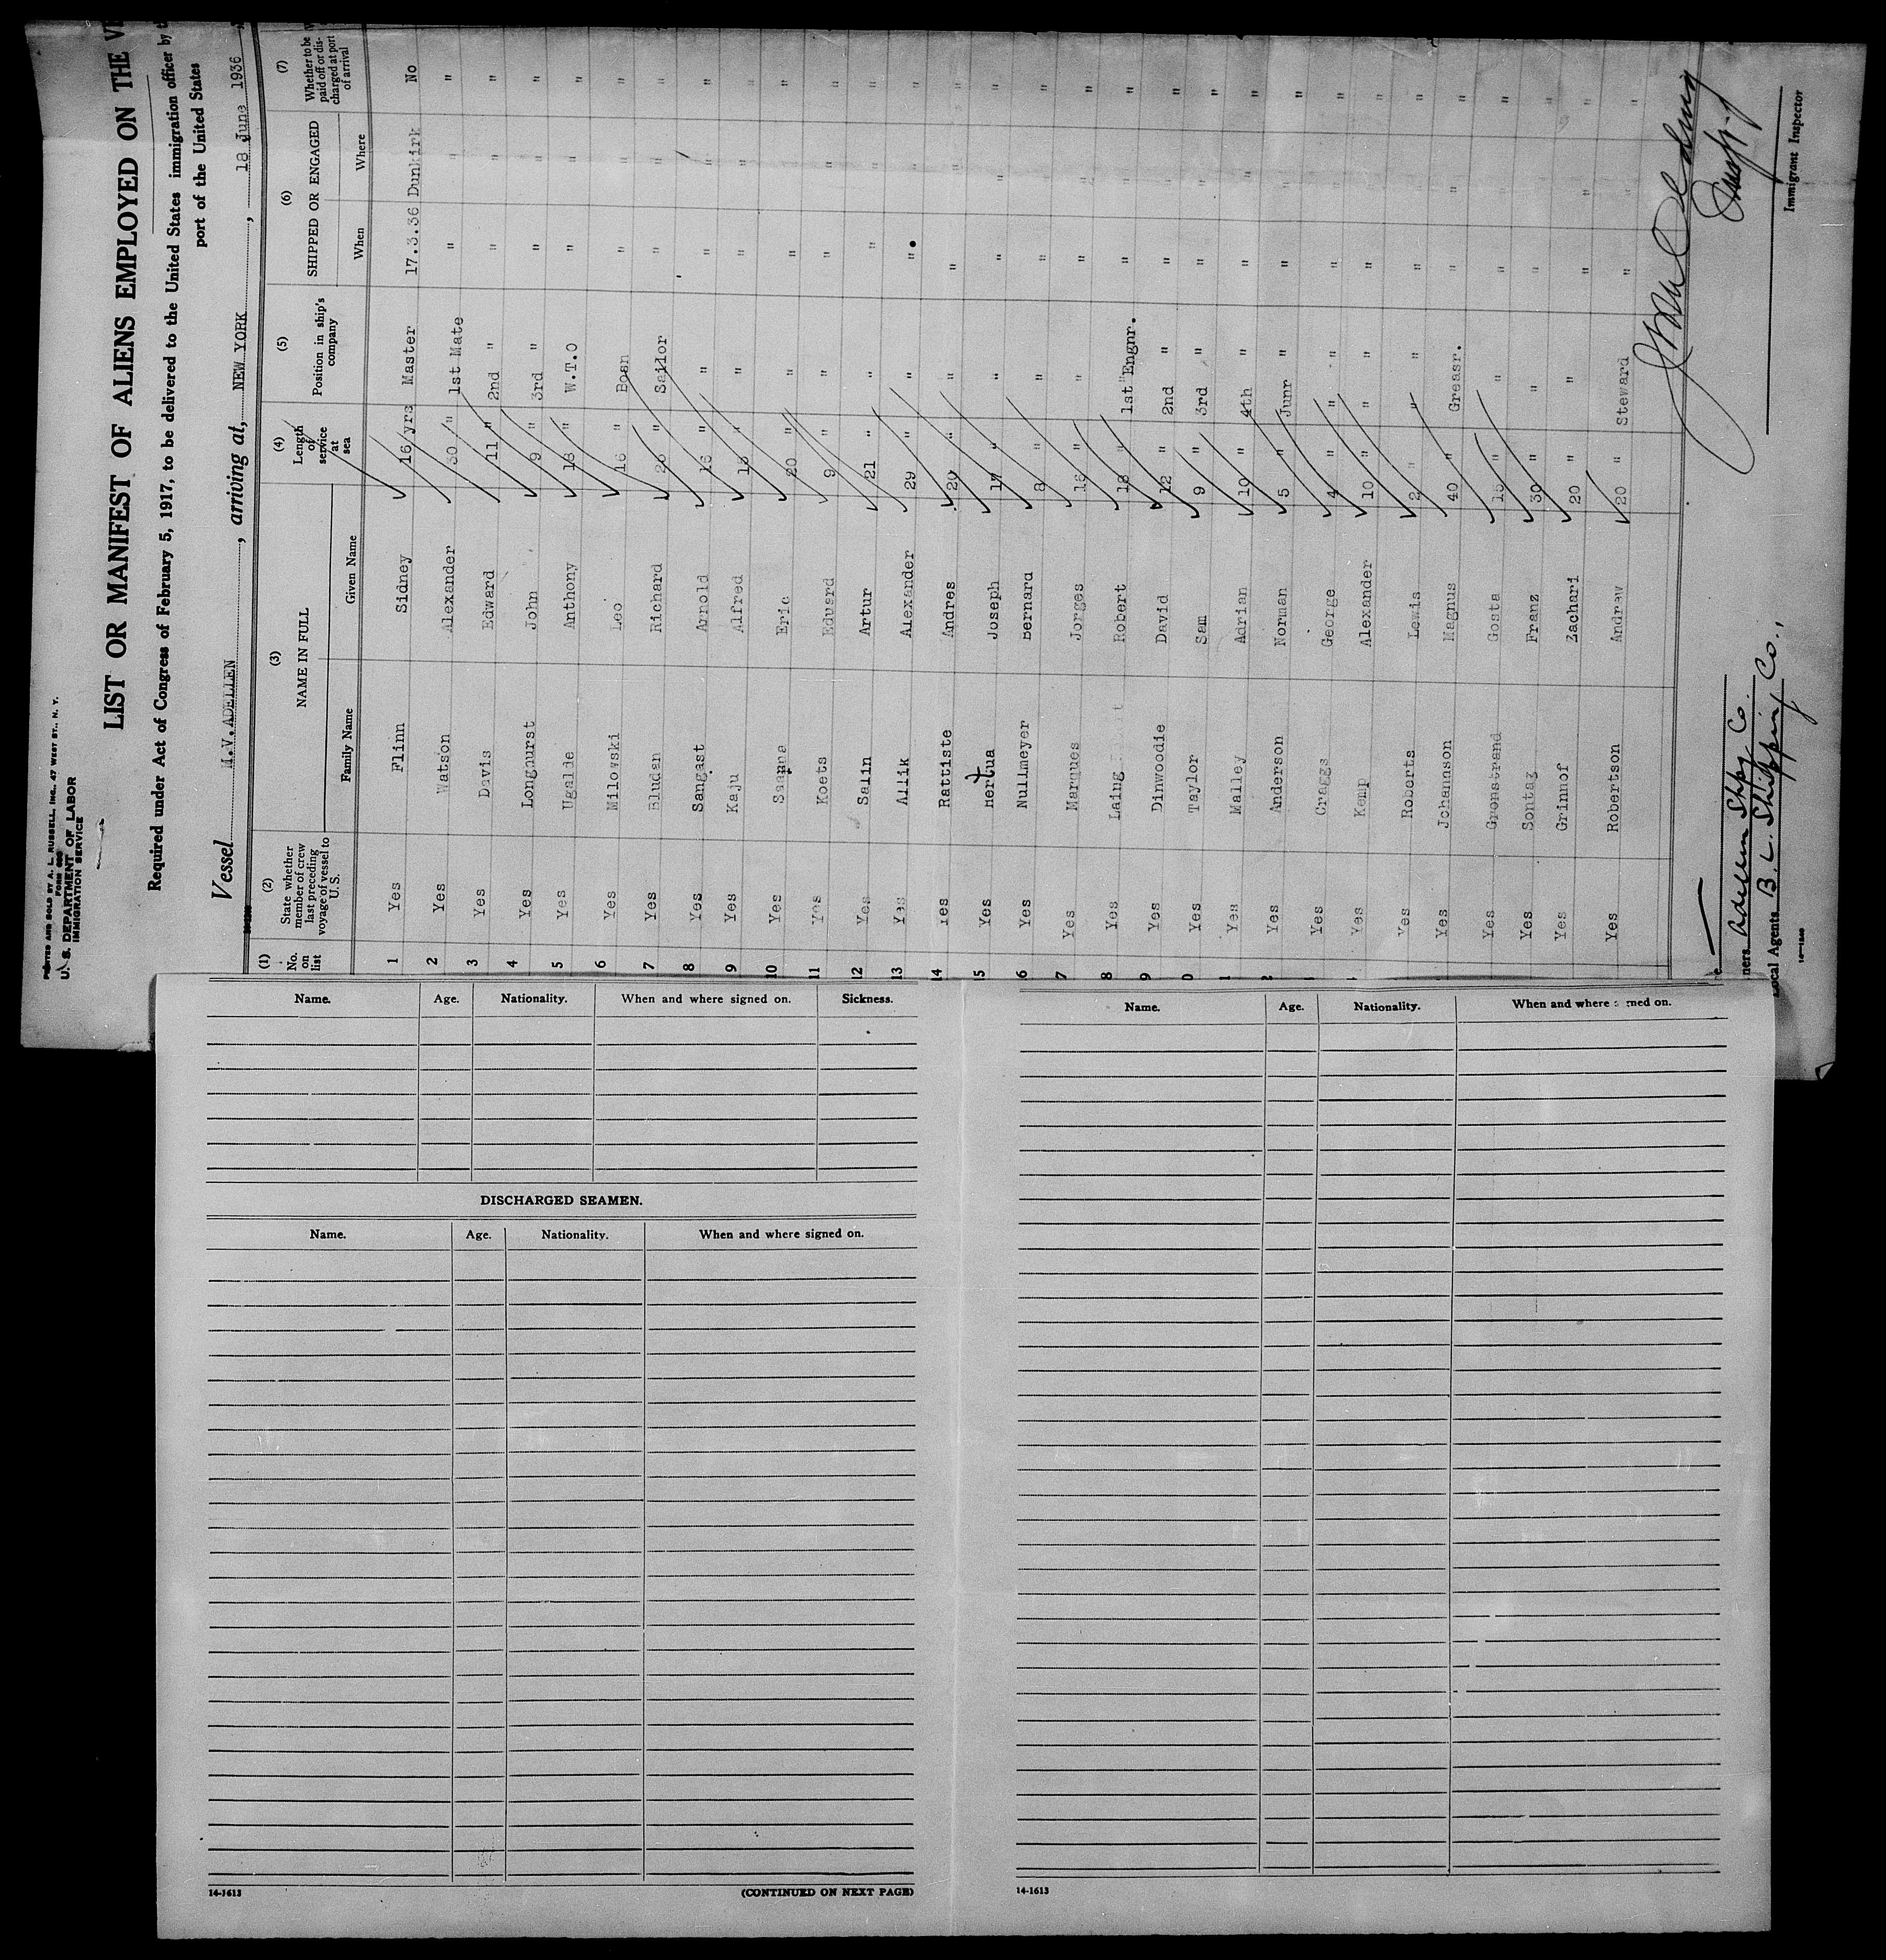 PRINTED AND SOLD BY A. L. RUSSELL, INC., 47 WEST ST., N. Y.
U. S. DEPARTMENT OF LABOR
IMMIGRATION SERVICE
LIST OR MANIFEST OF ALIENS EMPLOYED ON THE
Required under Act of Congress of February 5, 1917, to be delivered to the United States immigration officer by
port of the United States
Vessel M.V. ADELLEN, arriving at, NEW YORK, 18 June 1936
(1) (2) (3) (4) (5) (6) (7)
No. on list State whether member of crew last preceding voyage of vessel to U. S. NAME IN FULL Length of service at sea Position in ship's company SHIPPED OR ENGAGED Whether to be paid off or discharged at port of arrival
Family Name Given Name When Where
1 Yes Flinn Sidney 16 yrs Master 17.3.36 Dunkirk No
2 Yes Watson Alexander 30 " 1st Mate " " "
3 Yes Davis Edward 11 " 2nd " " " "
4 Yes Longhurst John 9 " 3rd " " " "
5 Yes Ugalde Anthony 18 " W.T.O " " "
6 Yes Milowski Leo 16 " Bosn " " "
7 Yes Bludan Richard " Sailor " " "
8 Yes Sangast Arnold 16 " " " " "
9 Yes Kaju Alfred " " " " "
10 Yes Eric 20 " " " " "
11 Yes Koets Eduard 9 " " " " "
12 Yes Salin Artur 21 " " " " "
13 Yes Allik Alexander 29 " " " " "
14 Yes Rattiste Andres 20 " " " " "
15 Yes Hertua Joseph 17 " " " " "
16 Yes Nullmeyer Bernard 8 " " " " "
7 Yes Marques Jorges 16 " " " " "
8 Yes Laing Robert 18 " 1st "Engnr. " " "
9 Yes Dinwoodie David 12 " 2nd " " " "
0 Yes Taylor Sam 9 " 3rd " " " "
1 Yes Malley Adrian 10 " 4th " " " "
2 Yes Anderson Norman 5 " Junr " " " "
Yes Craggs George 4 " " " " "
Yes Kemp Alexander 10 " " " " "
Yes Roberts Lewis 2 " " " " "
Yes Johannson Magnus 40 " Greasr. " " "
Yes Gronstrand Gosta " " " " "
Yes Sontag Franz 30 " " " " "
Yes Grinnof Zachari 20 " " " " "
Yes Robertson Andrew 20 " Steward " " "
Immigrant Inspector
ners Adellen Shpg Co.
Local Agents B. L. Shipping Co.,
Name. Age. Nationality. When and where signed on. Sickness.
DISCHARGED SEAMEN.
Name. Age. Nationality. When and where signed on.
14-1613 (CONTINUED ON NEXT PAGE)
Name. Age. Nationality. When and where signed on.
14-1613